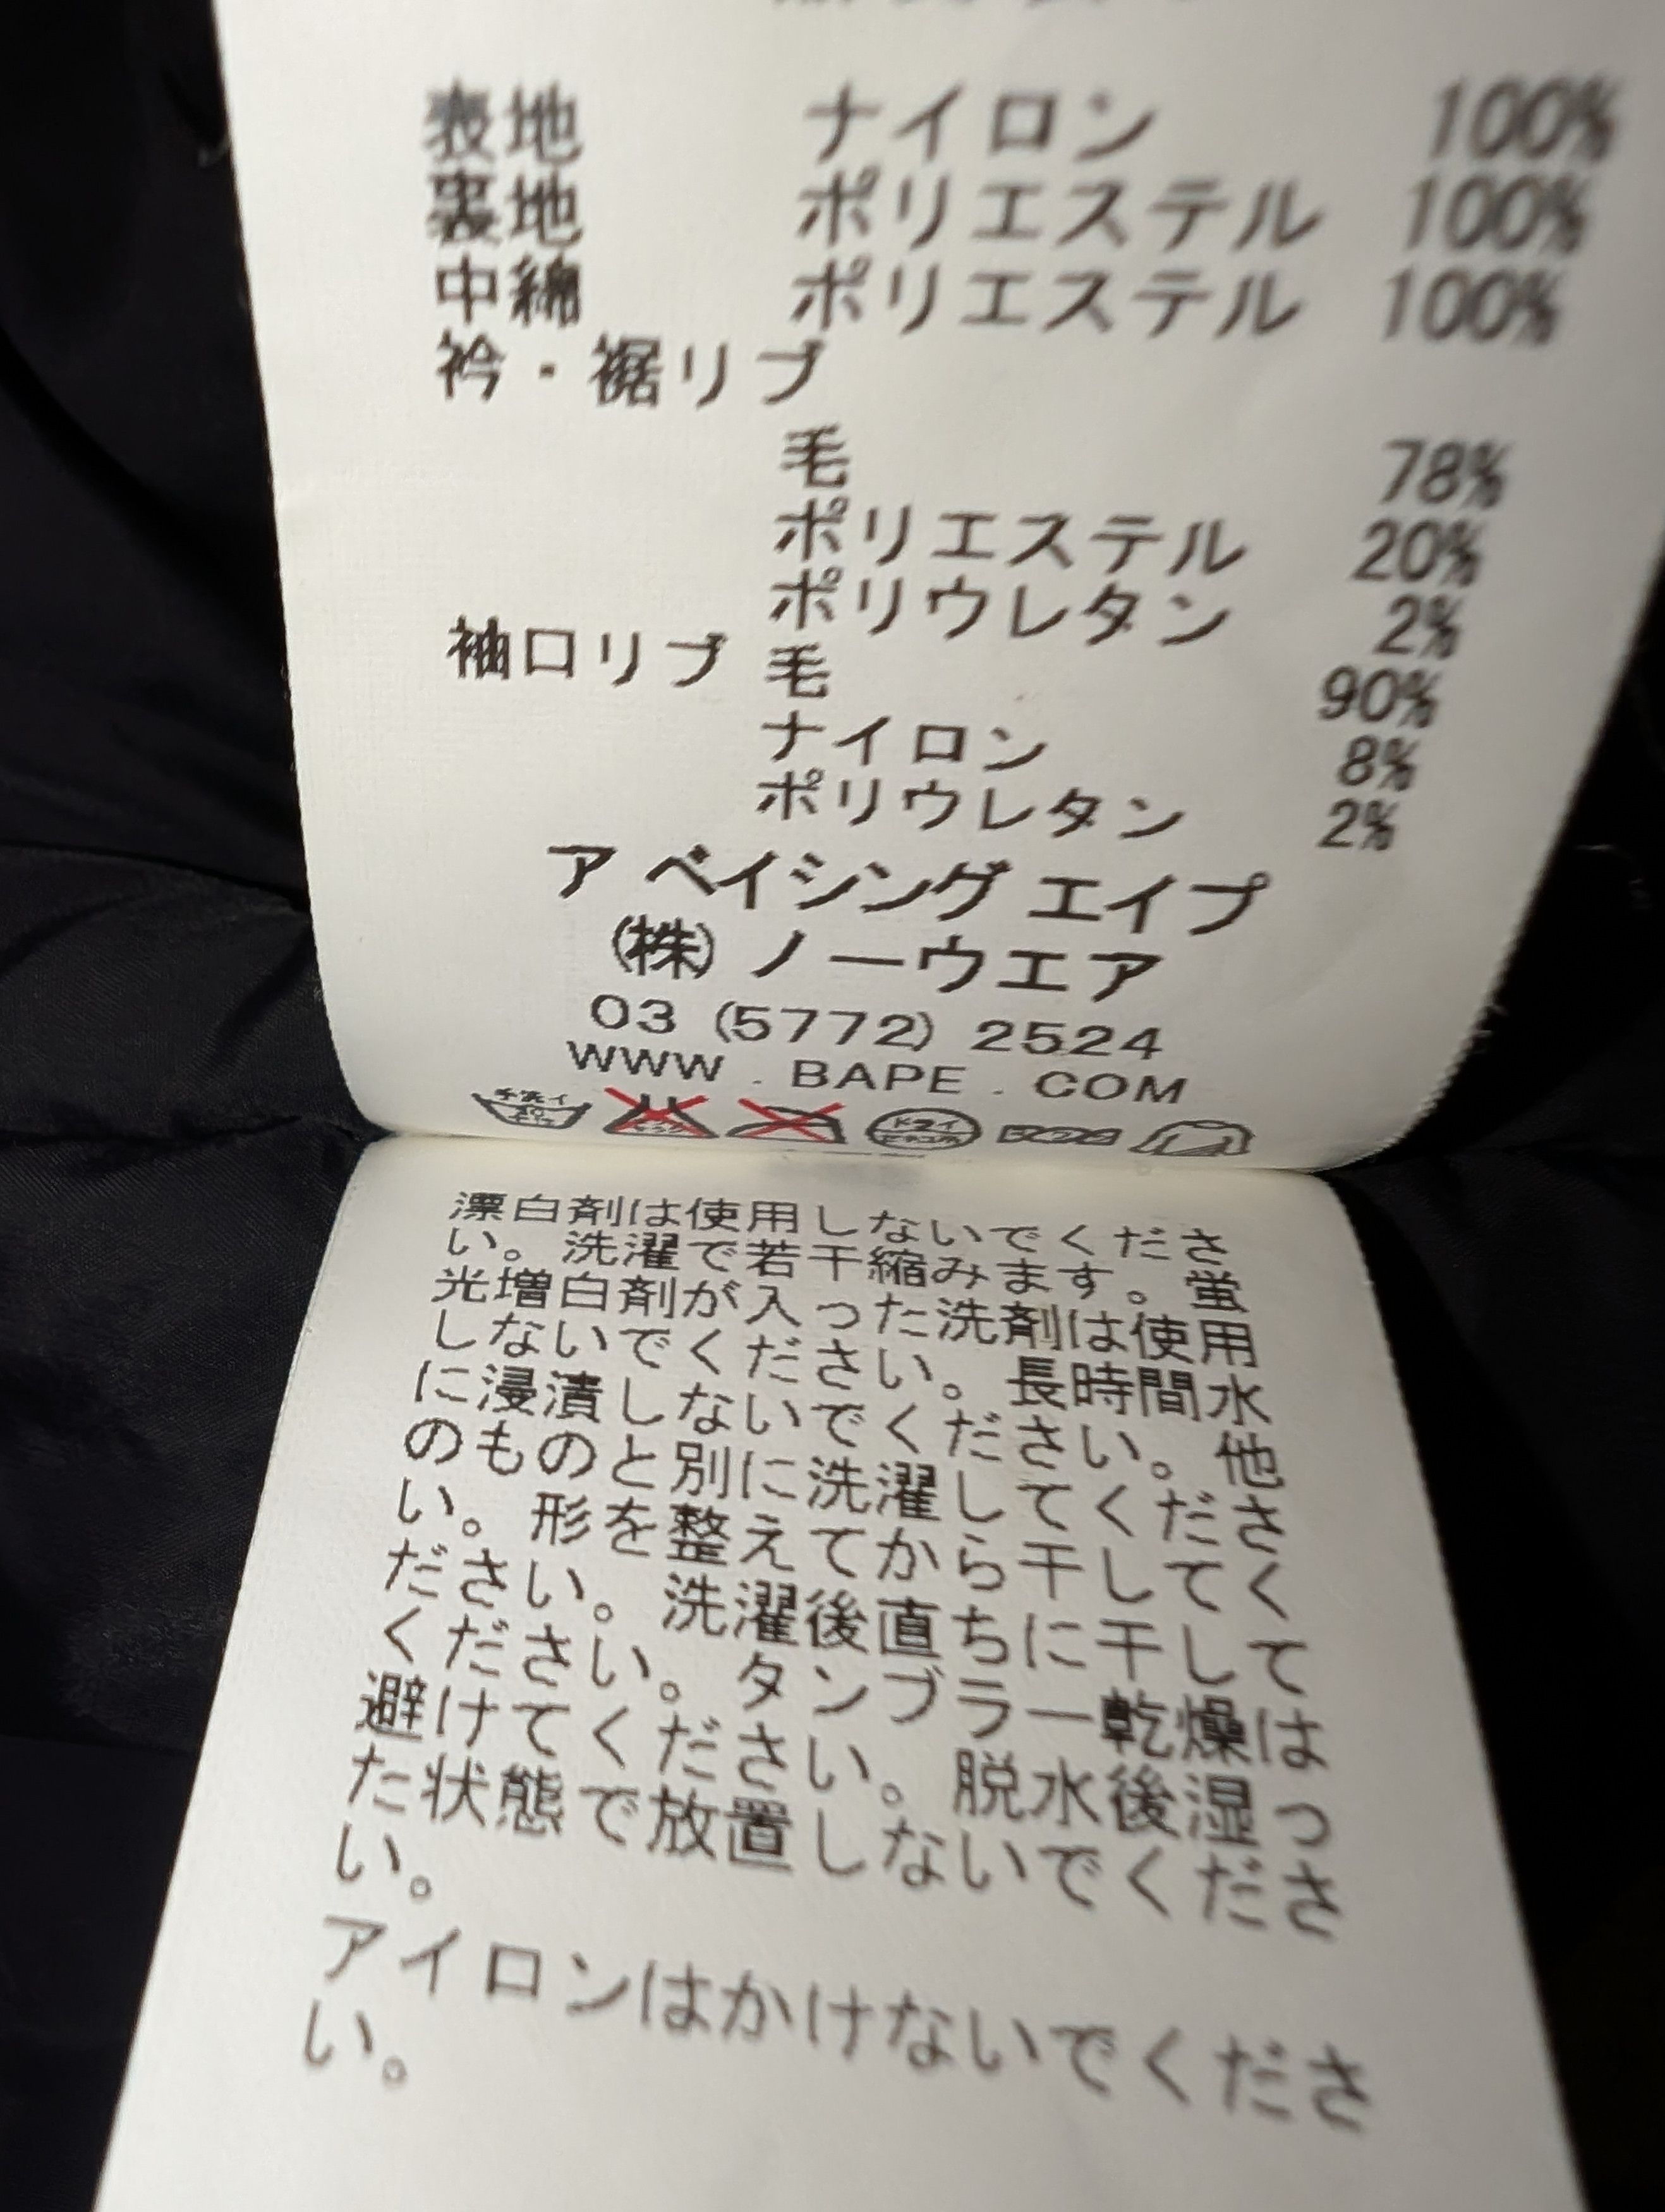 表地 ナイロン 100%
裏地 ポリエステル 100%
中綿 ポリエステル 100%
衿・裾リブ
毛 78%
ポリエステル 20%
ポリウレタン 2%
袖口リブ 毛 90%
ナイロン 8%
ポリウレタン 2%
ア ベイシング エイプ
(株) ノーウエア
03 (5772) 2524
WWW . BAPE . COM
手洗イ
ドライ
漂白剤は使用しないでくださ
い。洗濯で若干縮みます。蛍
光増白剤が入った洗剤は使用
しないでください。長時間水
に浸漬しないでください。他
のものと別に洗濯してくださ
い。形を整えてから干してく
ださい。洗濯後直ちに干して
ください。タンブラー乾燥は
避けてください。脱水後湿っ
た状態で放置しないでくださ
い。
アイロンはかけないでくださ
い。